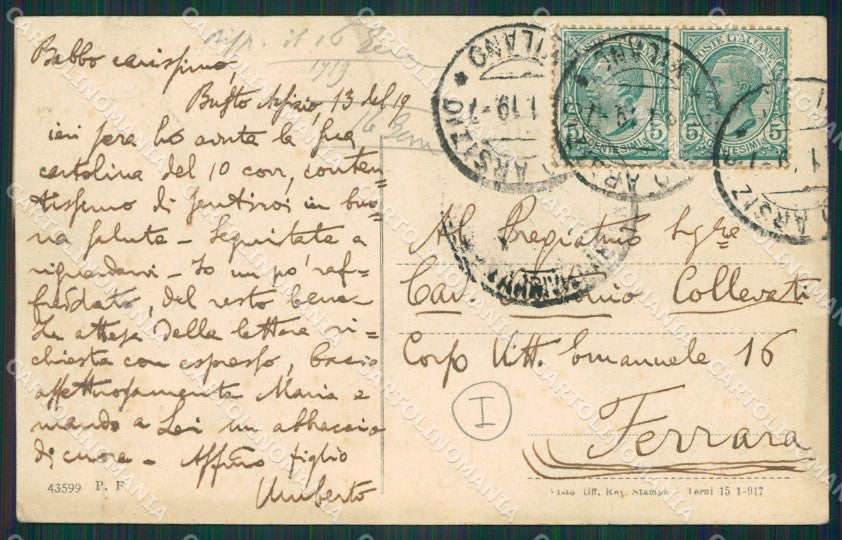 Risp. il 16 Gen
1919
16 Genn
Babbo carissimo,
Busto Arsizio, 13 del 19
ieri sera ho avuta la sua
cartolina del 10 corr, conten=
tissimo di sentirvi in buo=
na salute – Seguitate a
riguardarvi – Io un po' raf=
freddato, del resto bene –
In attesa della lettera ri=
chiesta con espresso, bacio
affettuosamente Maria e
mando a Lei un abbraccio
di cuore – Affmo figlio
Umberto
43599 P. F.
POSTE ITALIANE
5 CENTESIMI 5
5 CENTESIMI 5
BUSTO ARSIZIO * MILANO
Al Pregiatmo Sigre
Cav. Collevati
Corso Vitt. Emanuele 16
Ferrara
I
Visto Uff. Rev. Stampa - Terni 15 1-917
CARTOLINOMANIA